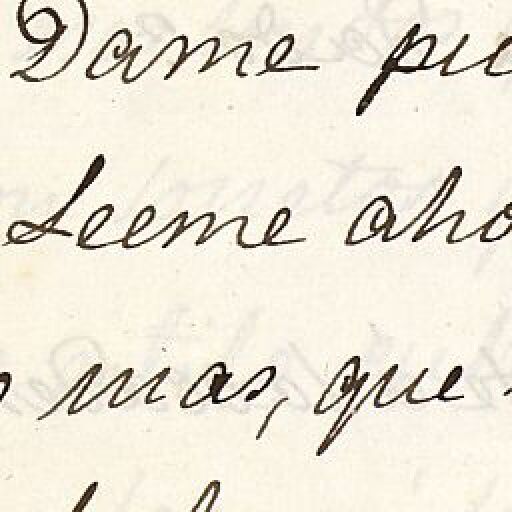 Dame pu
Leeme aho
mas, que